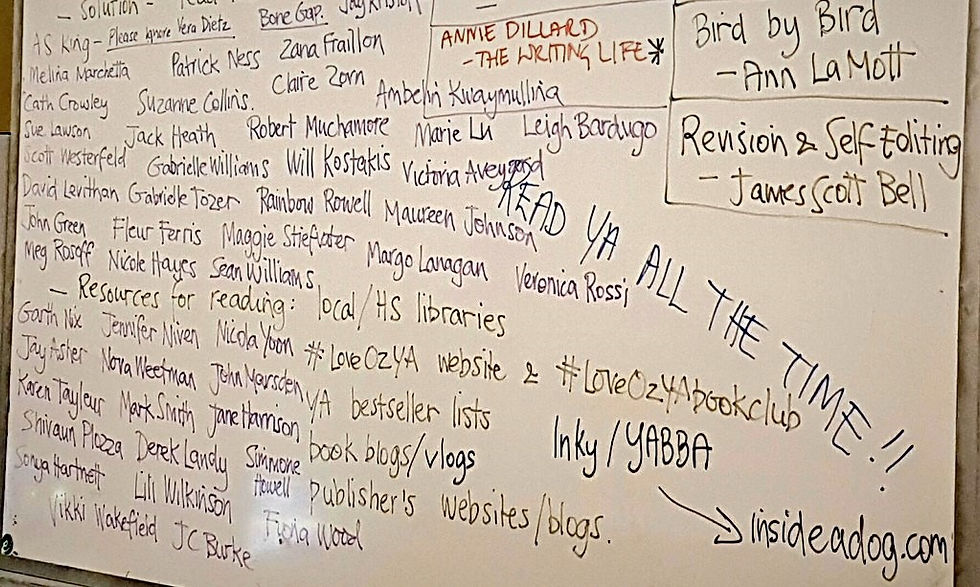 - Solution -
AS King - Please Ignore Vera Dietz. Bone Gap. Jay Kristoff
Melina Marchetta Patrick Ness Zana Fraillon
Cath Crowley Suzanne Collins. Claire Zorn Ambelin Kwaymullina
Sue Lawson Jack Heath Robert Muchamore Marie Lu Leigh Bardugo
Scott Westerfeld Gabrielle Williams Will Kostakis Victoria Aveyard
David Levithan Gabrielle Tozer Rainbow Rowell Maureen Johnson
John Green Fleur Ferris Maggie Stiefvater Margo Lanagan Veronica Rossi
Meg Rosoff Nicole Hayes Sean Williams
- Resources for reading: local/HS libraries
Garth Nix Jennifer Niven Nicola Yoon #LoveOzYA website & #LoveOzYAbookclub
Jay Asher Nova Weetman John Marsden YA bestseller lists
Karen Tayleur Mark Smith Jane Harrison book blogs/vlogs
Shivaun Plozza Derek Landy Simmone Howell publisher's websites/blogs.
Sonya Hartnett Lili Wilkinson Fiona Wood
Vikki Wakefield JC Burke
ANNIE DILLARD
- THE WRITING LIFE*
Bird by Bird
- Ann LaMott
Revision & Self Editing
- James Scott Bell
READ YA ALL THE TIME!!
Inky/YABBA
insideadog.com